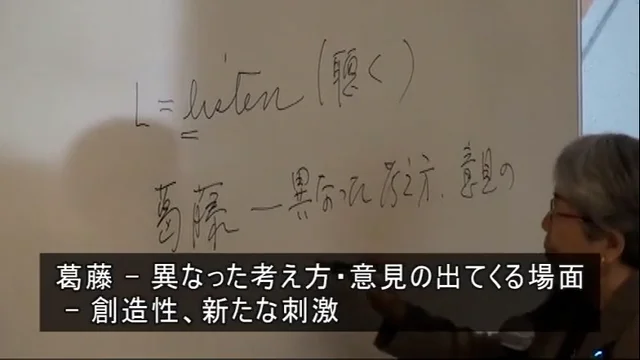 L = listen (聴く)
葛藤 — 異なった考え方、意見の
葛藤 – 異なった考え方・意見の出てくる場面
– 創造性、新たな刺激